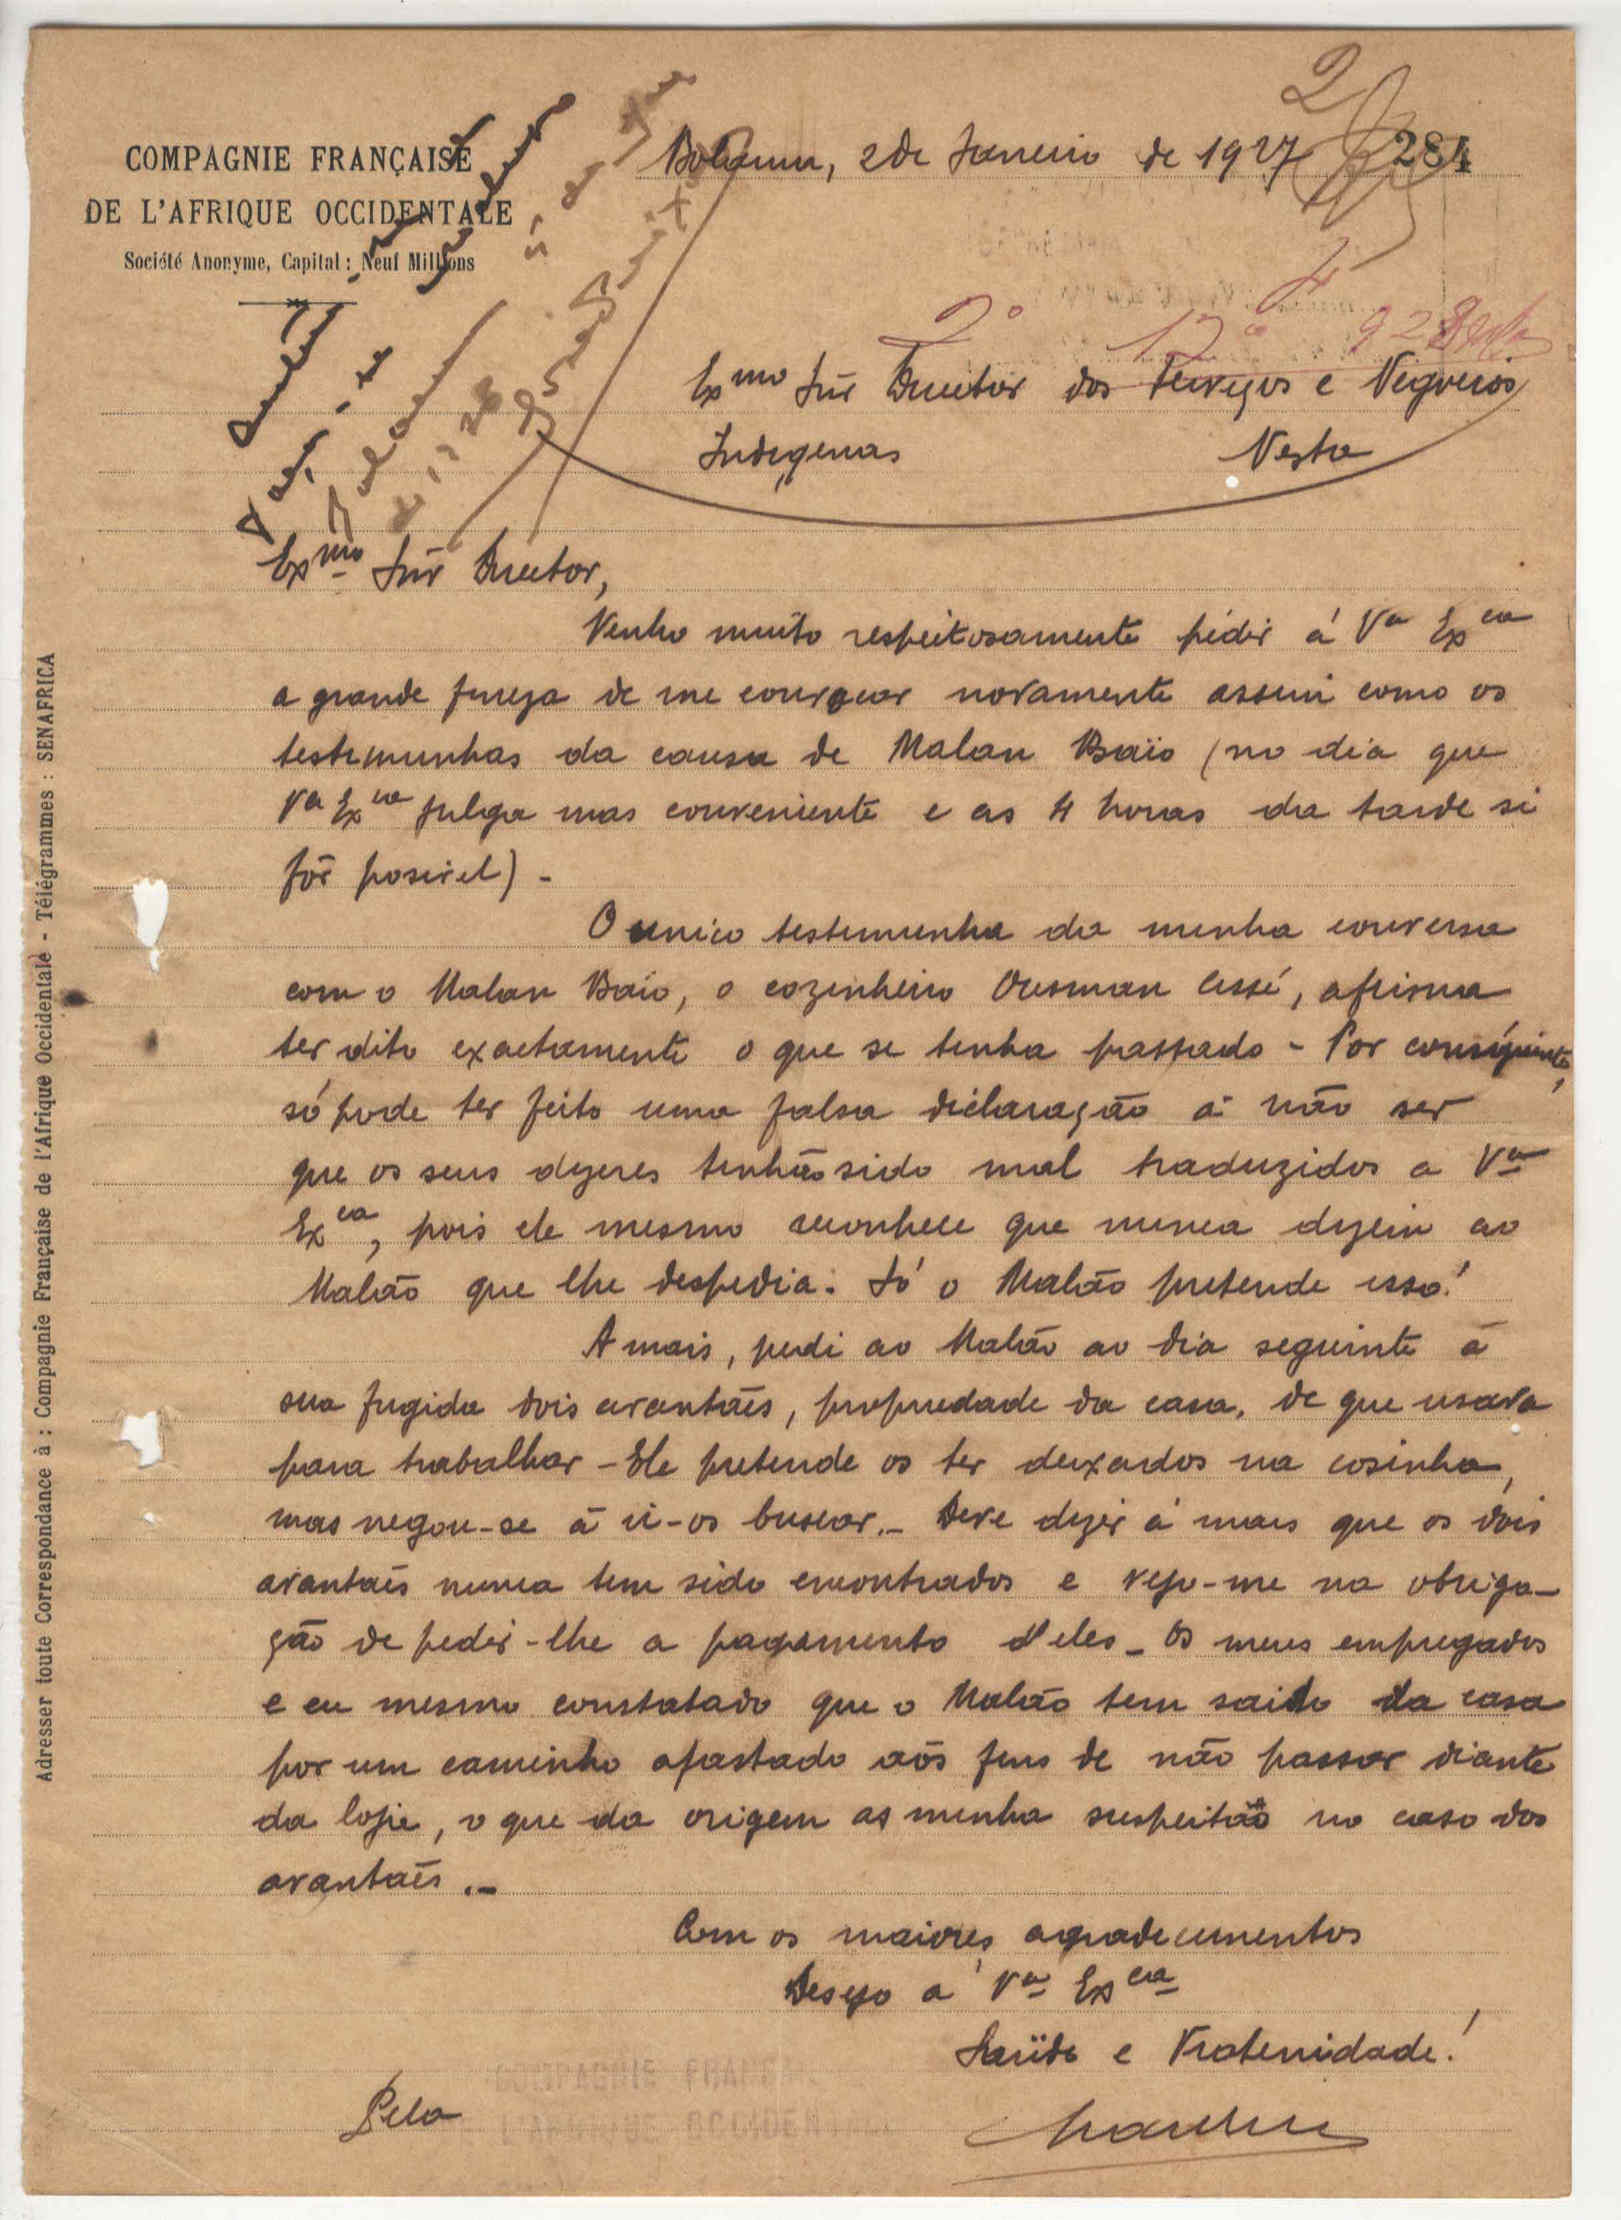 COMPAGNIE FRANÇAISE
DE L'AFRIQUE OCCIDENTALE
Société Anonyme, Capital : Neuf Millions
Bolama, 2 de Janeiro de 1927
284
2º
Exmo Snr Director dos Serviços e Negocios
Indigenas Nesta
Exmo Snr Director,
Venho muito respeitosamente pédir á Va Exca
a grande fineza de me convocar novamente assim como os
testemunhas da causa de Malan Baïo (no dia que
Va Exca julga mas conveniente e as 4 horas da tarde si
fôr posivel) -
O unico testemunha da minha conversa
com o Malan Baïo, o cozinheiro Ousman Cissé, afirma
ter dito exactamente o que se tenha passado - Por consiguinte,
só pode ter feito uma falsa déclaração a não ser
que os seus dizeres tenhão sido mal traduzidos a Va
Exca, pois ele mesmo reconhece que nunca dizein ao
Malão que lhe despedia. Só o Malão pretende isso!
A mais, pedi ao Malão ao dia seguinte á
sua fugida dois avantaes, propriedade da casa, de que usava
para trabalhar - Ele pretende os ter deixados na cosinha,
mas negou-se á ir-os buscar. - Deve dizer á mais que os dois
avantaes nunca tem sido encontrados e vejo-me na obriga-
ção de pedir-lhe a pagamento d'eles - Os meus empregados
e eu mesmo constatado que o Malão tem saido da casa
por um caminho afastado aös fins de não passar diante
da loje, o que da origem as minha suspeitas no caso dos
avantaes. -
Com os maiores agradecimentos
Desejo a Va Excia
Saüde e Fraternidade!
Pela
COMPAGNIE FRANÇAISE
L'AFRIQUE OCCIDENTALE
Adresser toute Correspondance à : Compagnie Française de l'Afrique Occidentale - Télégrammes : SENAFRICA